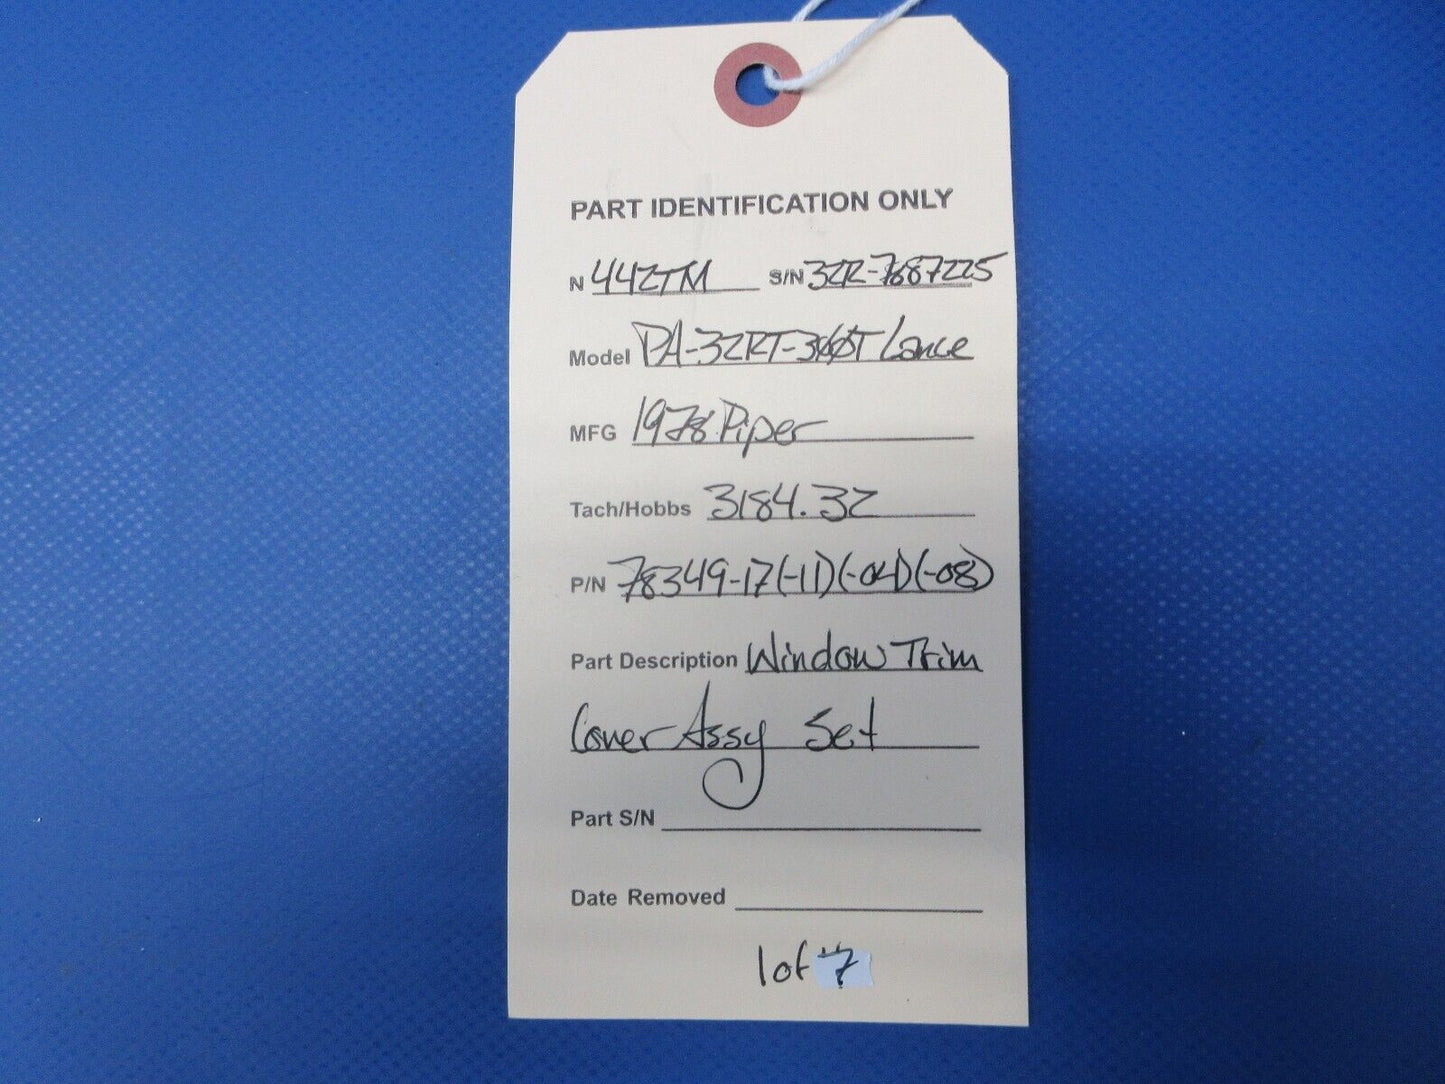 PART IDENTIFICATION ONLY
N 442TM S/N 32R-7887225
Model PA-32RT-300T Lance
MFG 1978 Piper
Tach/Hobbs 3184.32
P/N 78349-17(-11)(-04)(-08)
Part Description Window Trim
Cover Assy Set
Part S/N
Date Removed
1 of 7